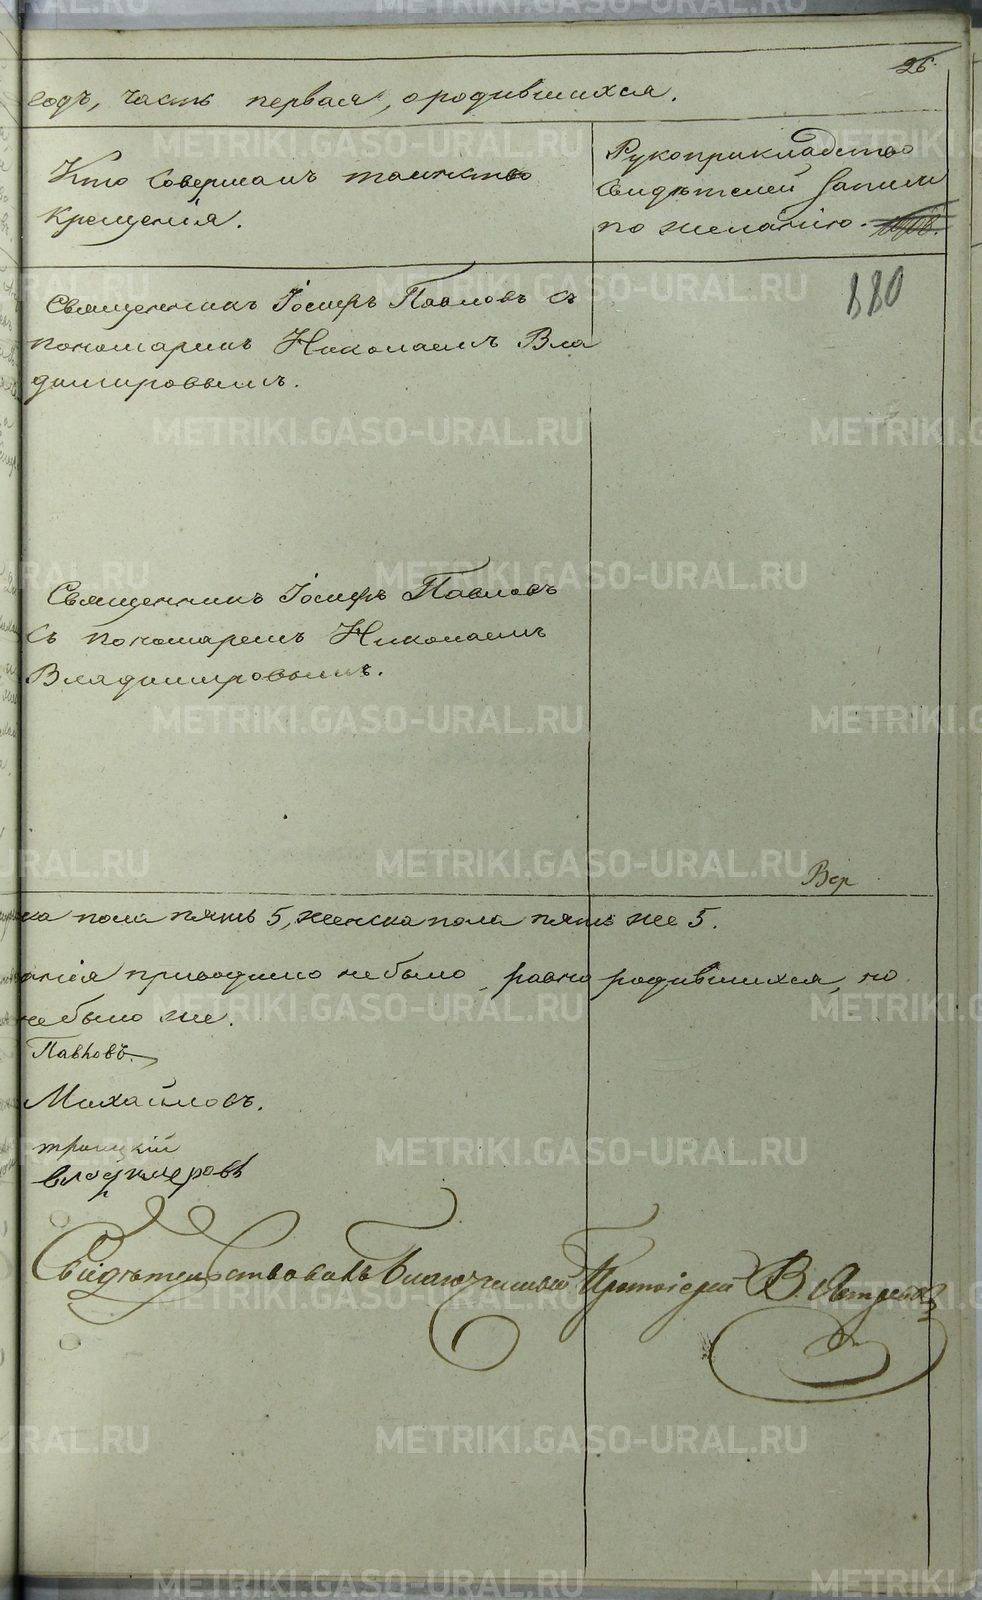 26
годъ, часть первая, ородившихся.
Кто Совершалъ таинство
крещенія.
Рукоприкладство
Свидѣтелей Записи
по желанію.
880
Священникъ Іосифъ Павловъ съ
пономаремъ Николаемъ Вла
димировымъ.
Священникъ Іосифъ Павловъ
Съ пономаремъ Николаемъ
Владимировымъ.
Вер
ка пола пять 5, женска пола пять же 5.
анія приводимо небыло, равно родившихся, но
небыло же.
Павловъ.
Михайловъ.
троицкій
владимеровъ
Свидѣтельствовалъ Благочинный Протоіерей В.
METRIKI.GASO-URAL.RU